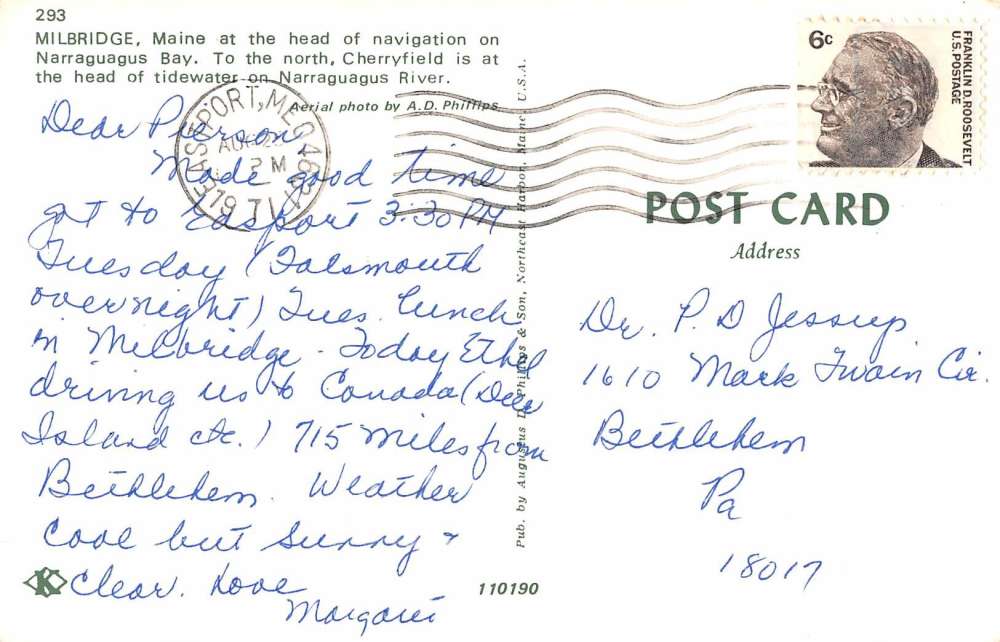 293
MILBRIDGE, Maine at the head of navigation on
Narraguagus Bay. To the north, Cherryfield is at
the head of tidewater on Narraguagus River.
Aerial photo by A.D. Phillips
Dear Pierson
Made good time
got to Easport 3:30 PM
Tuesday (Falsmouth
overnight) Tues. lunch
in Milbridge - Today Ethel
driving us to Canada (Deer
Island etc.) 715 miles from
Bethlehem. Weather
cool but sunny +
clear. Love
Margaret
K
110190
Pub. by Augustus D. Phillips & Son, Northeast Harbor, Maine, U.S.A.
EASTPORT, ME 04631
AUG
2 PM
6c
FRANKLIN D. ROOSEVELT
U.S. POSTAGE
POST CARD
Address
Dr. P. D Jessup
1610 Mark Twain Cir.
Bethlehem
Pa
18017